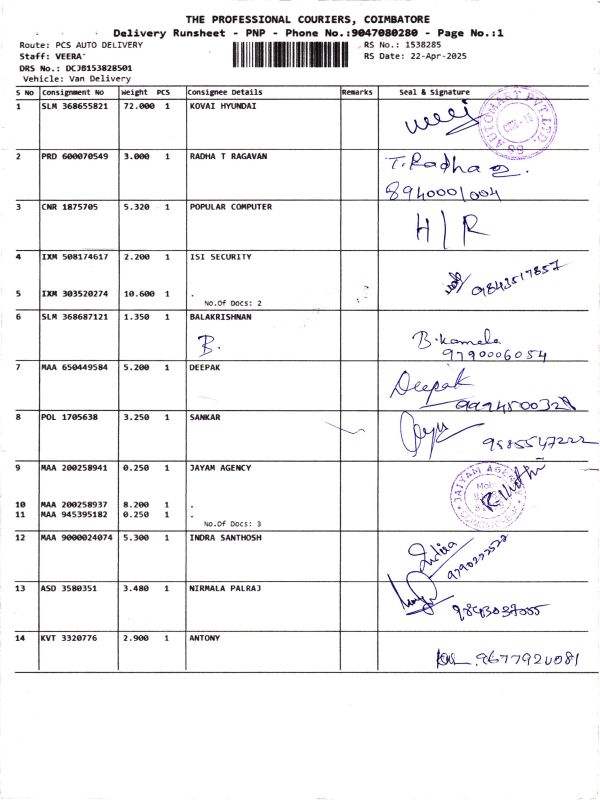 THE PROFESSIONAL COURIERS, COIMBATORE
Delivery Runsheet - PNP - Phone No.:9047080280 - Page No.:1
Route: PCS AUTO DELIVERY
RS No.: 1538285
Staff: VEERA
RS Date: 22-Apr-2025
DRS No.: DCJB153828501
Vehicle: Van Delivery
S No Consignment No Weight PCS Consignee Details Remarks Seal & Signature
1 SLM 368655821 72.000 1 KOVAI HYUNDAI
AUTOMART PVT.LTD.
2 PRD 600070549 3.000 1 RADHA T RAGAVAN
T.Radha
8940001004
3 CNR 1875705 5.320 1 POPULAR COMPUTER
H/R
4 IXM 508174617 2.200 1 ISI SECURITY
9843517857
5 IXM 303520274 10.600 1 .
No.Of Docs: 2
6 SLM 368687121 1.350 1 BALAKRISHNAN
B.
B.Kamala
9790006054
7 MAA 650449584 5.200 1 DEEPAK
Deepak
8 POL 1705638 3.250 1 SANKAR
9585547222
9 MAA 200258941 0.250 1 JAYAM AGENCY
10 MAA 200258937 8.200 1 .
11 MAA 945395182 0.250 1 .
No.Of Docs: 3
12 MAA 9000024074 5.300 1 INDRA SANTHOSH
13 ASD 3580351 3.480 1 NIRMALA PALRAJ
14 KVT 3320776 2.900 1 ANTONY
9677920081